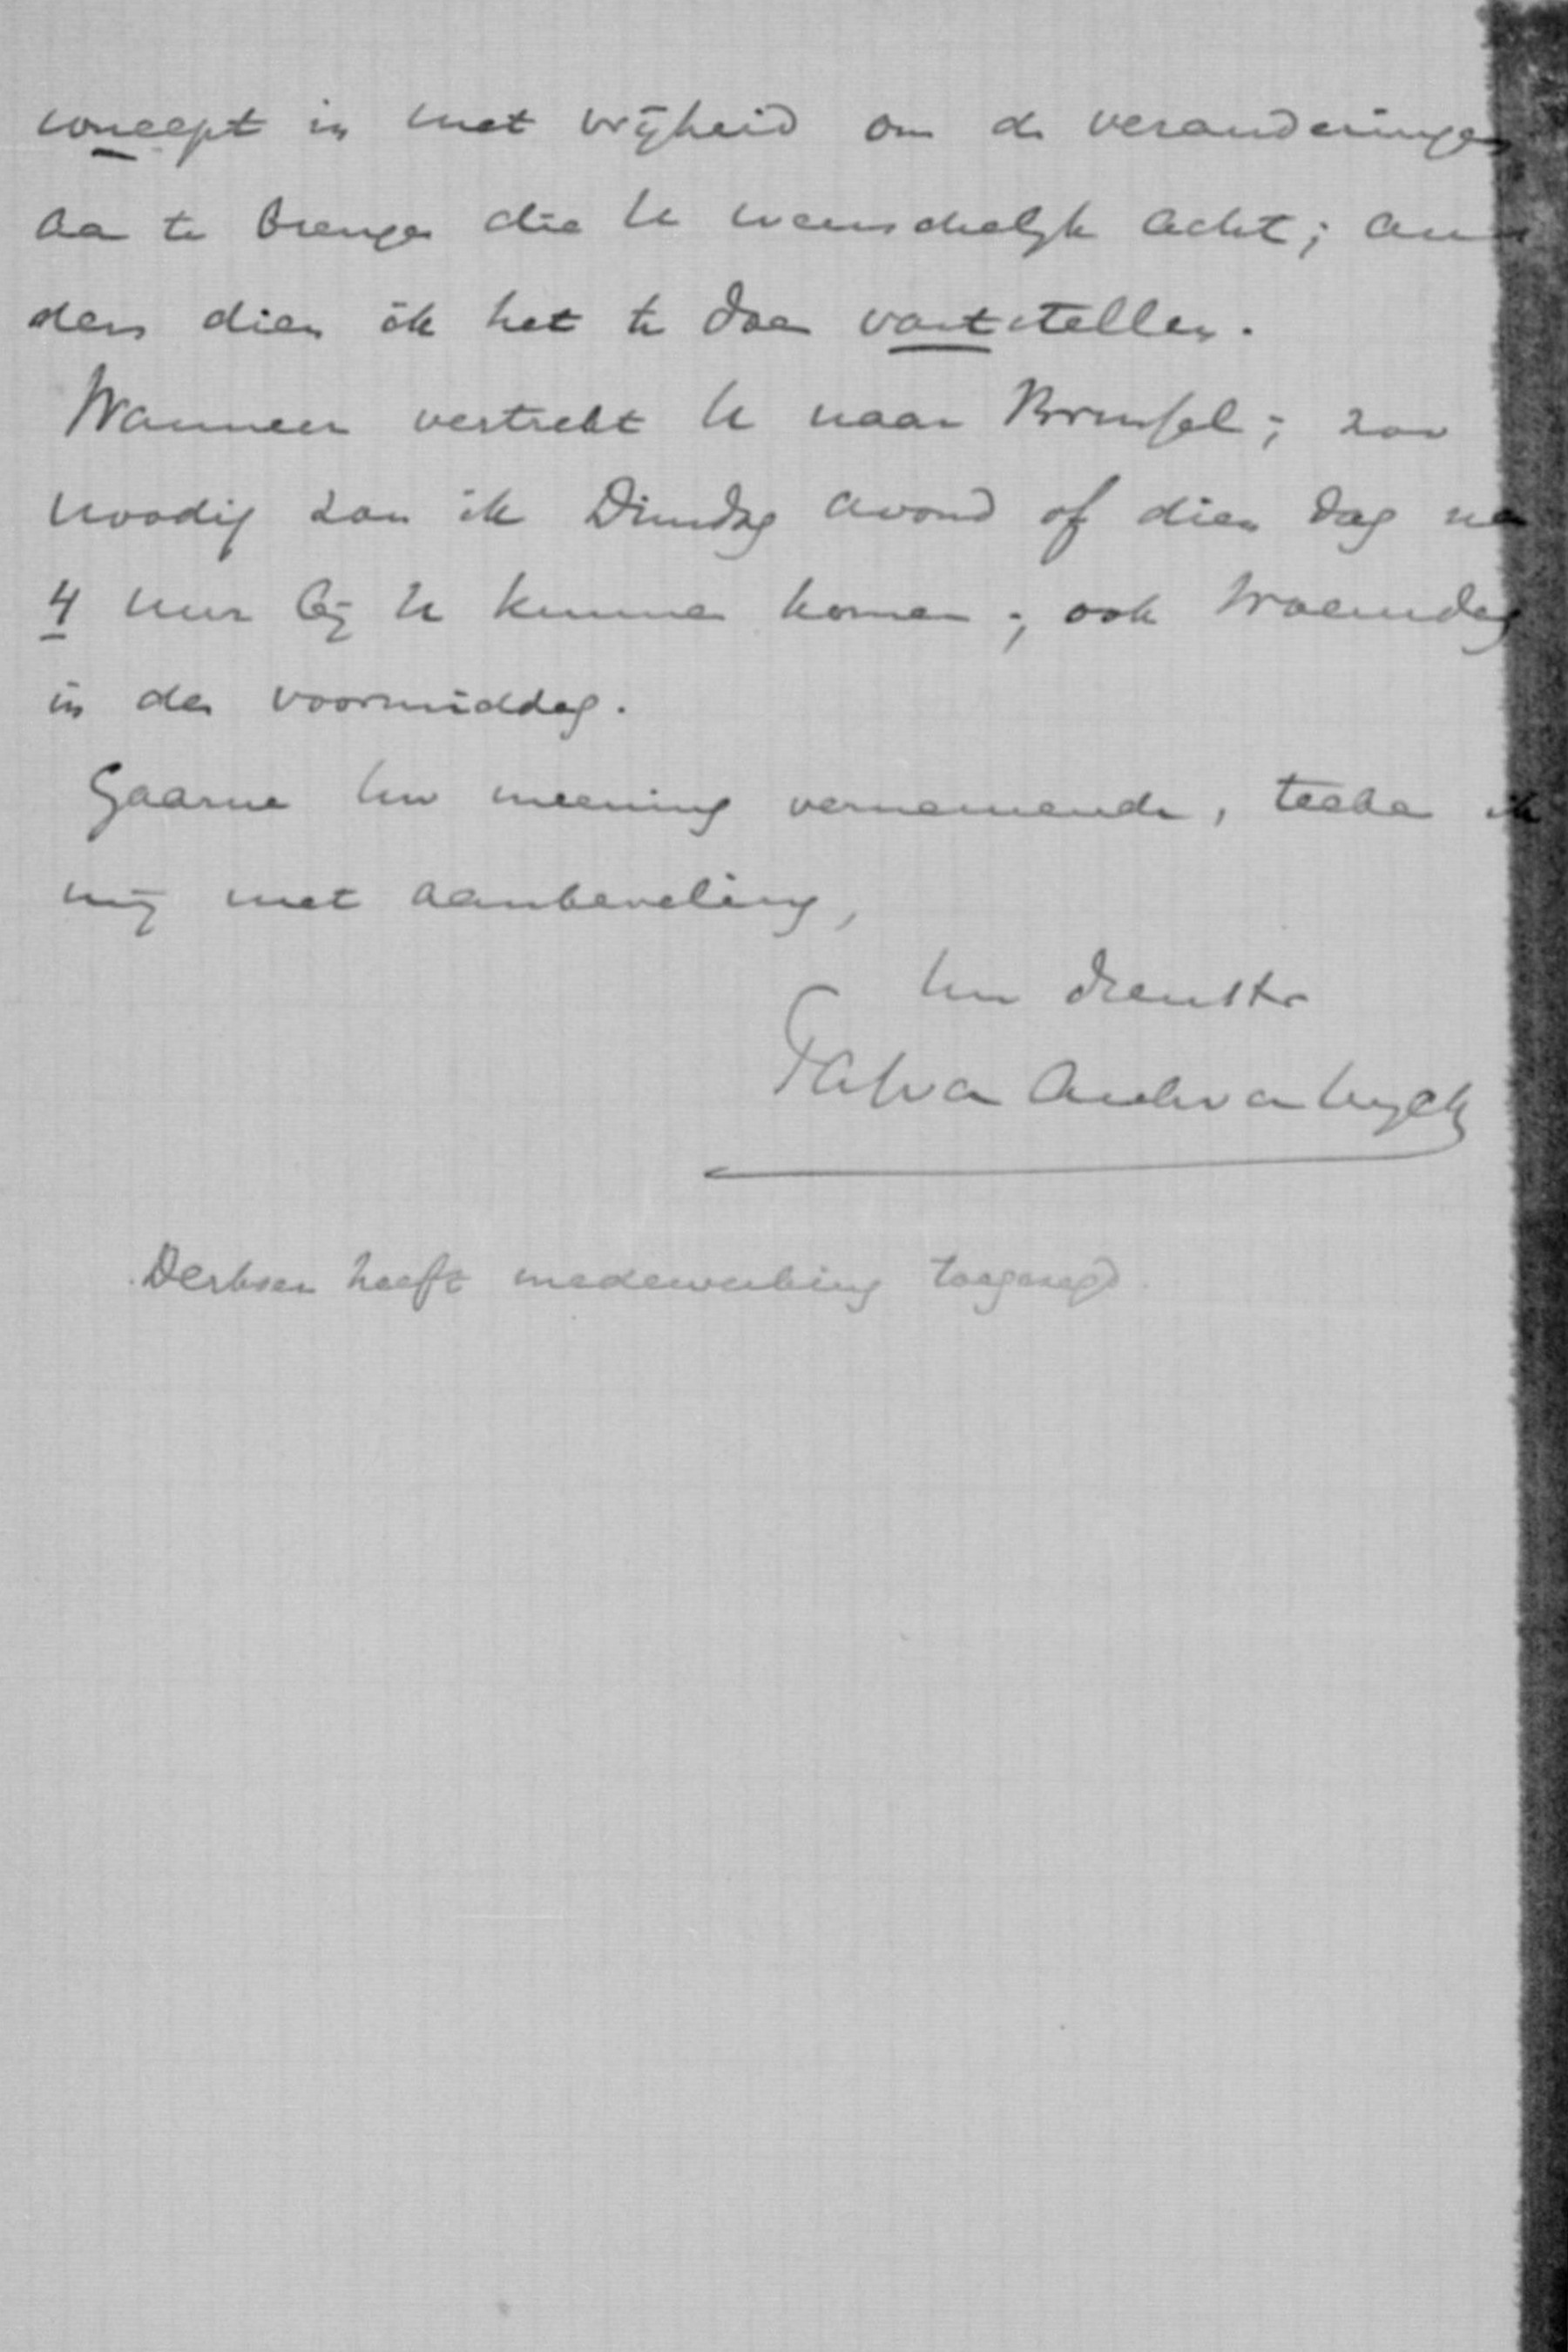 concept in met vrijheid om de veranderingen
aan te brengen die U wenschelijk acht; an
ders dien ik het te doen vaststellen.
Wanneer vertrekt U naar Brussel; zoo
noodig zou ik Dinsdag avond of dien dag na
4 uur bij U kunnen komen; ook Woensdag
in den voormiddag.
Gaarne Uw meening vernemende, teeken ik
mij met aanbeveling,
Uw dienstw
Derksen heeft medewerking toegezegd.